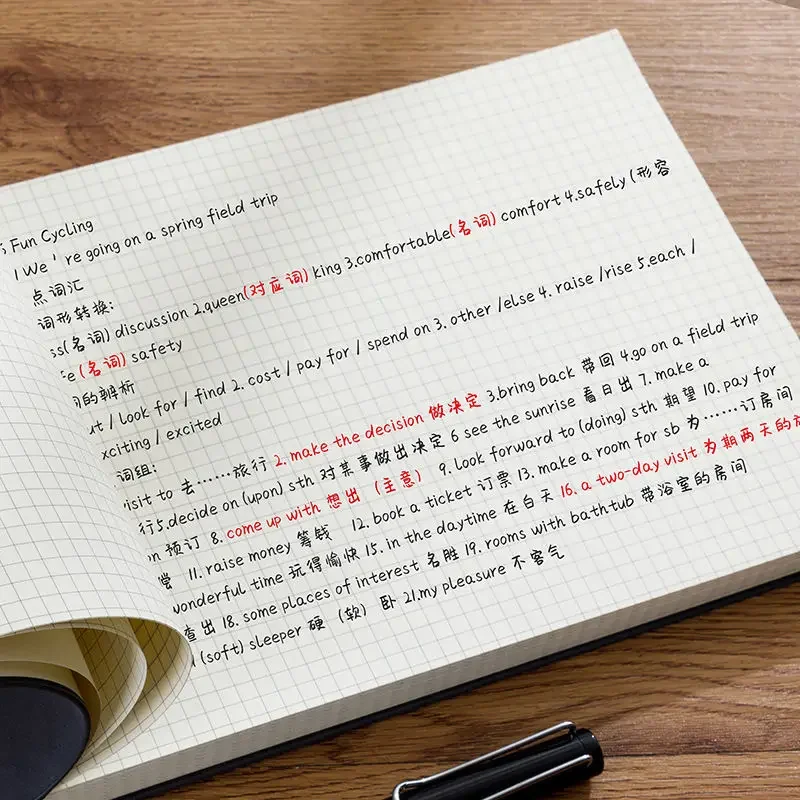 Fun Cycling
We're going on a spring field trip
点词汇
词形转换:
ss(名词) discussion 2.queen(对应词) king 3.comfortable(名词) comfort 4.safely (形容
fe(名词) safety
的辨析
ut / look for / find 2. cost / pay for / spend on 3. other /else 4. raise /rise 5.each /
xciting / excited
词组:
visit to 去……旅行 2. make the decision 做决定 3.bring back 带回 4.go on a field trip
行5.decide on (upon) sth 对某事做出决定 6 see the sunrise 看日出 7. make a
on 预订 8. come up with 想出 (主意) 9. look forward to (doing) sth 期望 10. pay for
偿 11. raise money 筹钱 12. book a ticket 订票 13. make a room for sb 为……订房间
wonderful time 玩得愉快 15. in the daytime 在白天 16. a two-day visit 为期两天的
查出 18. some places of interest 名胜 19. rooms with bathtub 带浴室的房间
(soft) sleeper 硬 (软) 卧 21.my pleasure 不客气